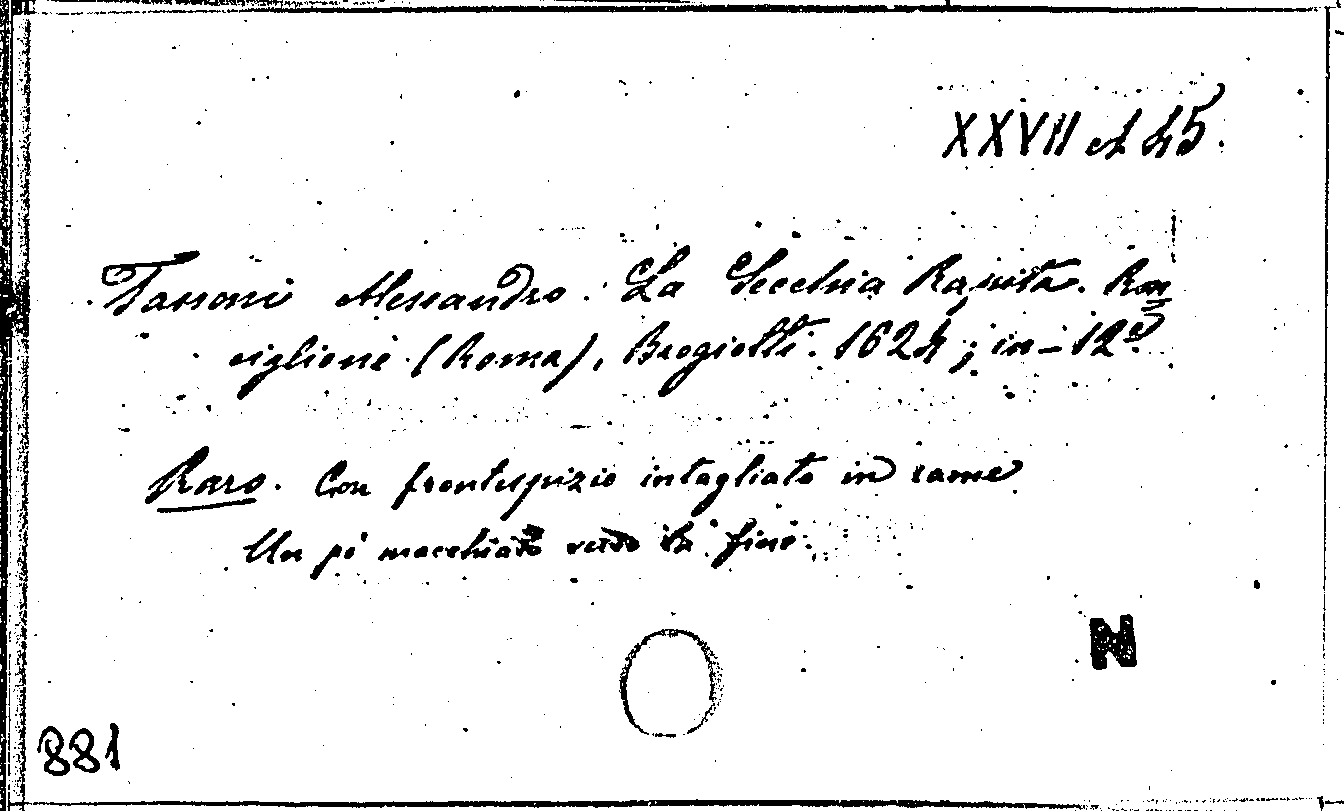 XXVII A 45.
Tassoni Alessandro. La Secchia Rapita. Ron
ciglione (Roma), Brogiotti. 1624; in-12º.
Raro. Con frontespizio intagliato in rame
Un pò macchiato verso la fine.
N
881